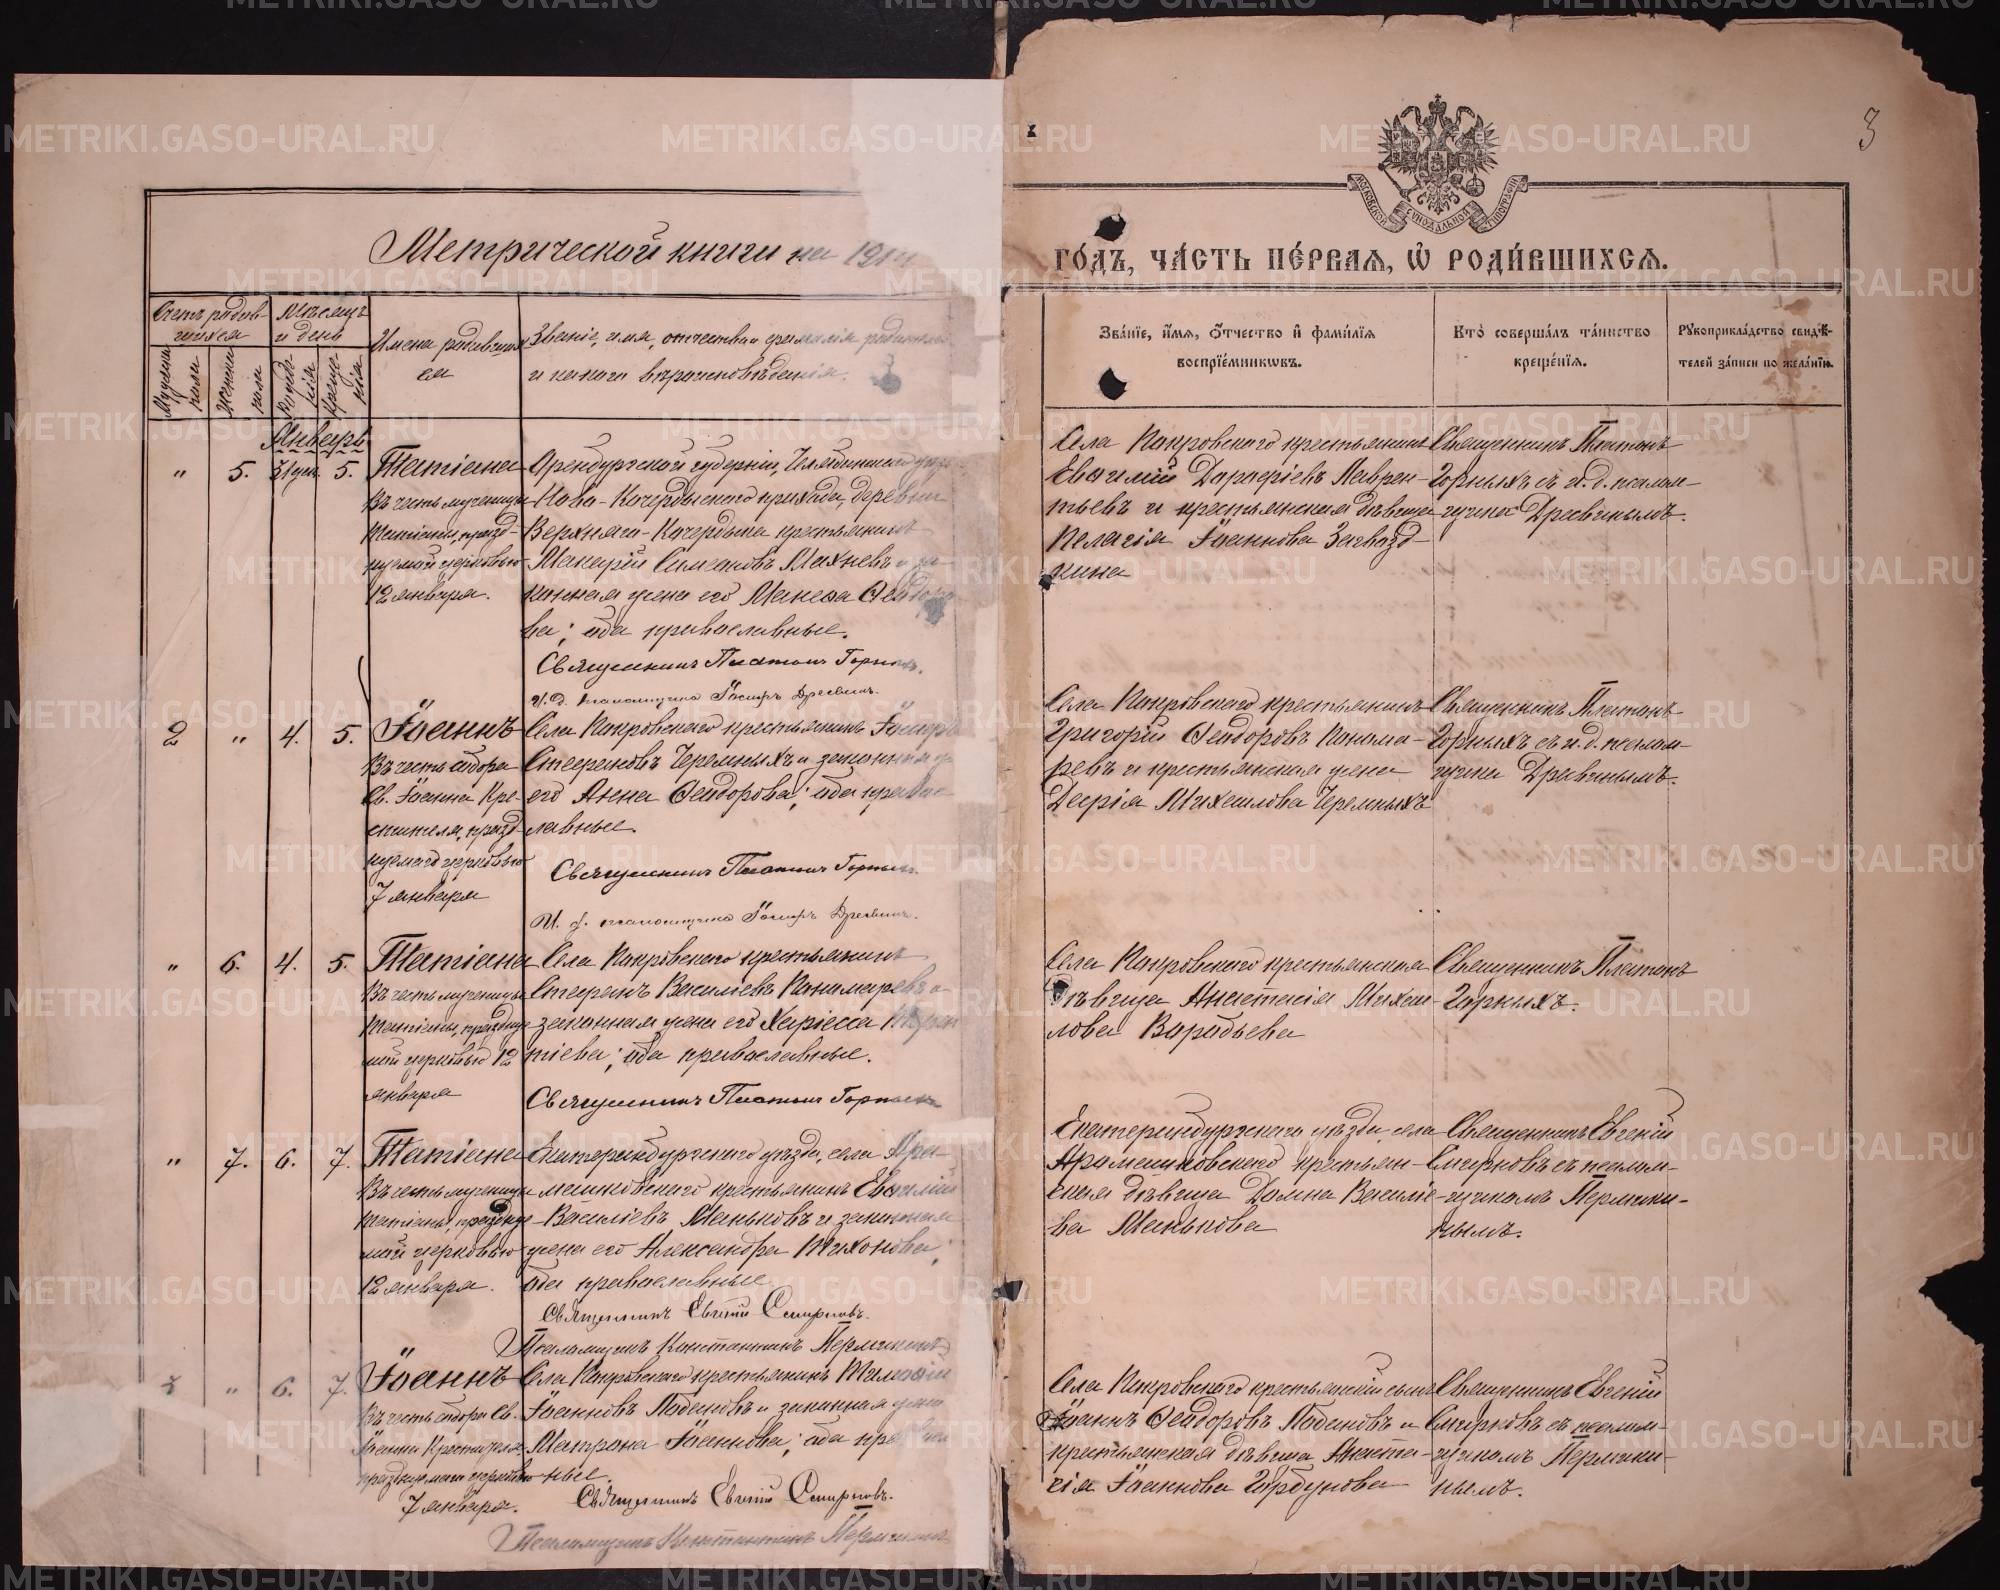 3
МОСКОВСКОЙ СѴНОДАЛЬНОЙ ТИПОГРАФІИ
Метрической книги на 1914
го́дъ, ча́сть пе́рвая, ѡ҆ роди́вшихся.
Счетъ родив-
шихся
Мѣсяцъ
и день
Имена родивших
ся
Званіе, имя, отчество и фамилія родителей
и какого вѣроисповѣданія.
Мужеска
пола
Женска
пола
Рожде-
нія
Креще-
нія
Зва́нїе, и҆́мя, ѻ҆́тчество и҆ фами́лїя
воспрїе́мникωвъ.
Кто̀ соверша́лъ та́инство
креще́нїя.
Рꙋкоприкла́дство свидѣ́-
телей за́писи по жела́нїю.
Январь
" 5. 31 дек. 5. Татіана
Въ честь мученицы
Татіаны, празд-
нуемой церковью
12 января.
Оренбургской губерніи, Челябинскаго уѣзда
Ново-Кочердыкскаго прихода, деревни
Верхняго-Кочердыка крестьянинъ
Макарій Симеоновъ Махневъ и за-
конная жена его Манефа Ѳеодоро
ва; оба православные.
Священникъ Платонъ Горныхъ.
И. д. псаломщика Іосифъ Древинъ.
Села Покровскаго крестьянинъ
Евѳимій Дороѳіевъ Лаврен-
тьевъ и крестьянская дѣвица
Пелагія Іоаннова Загвозд-
кина
Священникъ Платонъ
Горныхъ съ и. д. псалом-
щика Древинымъ.
2 " 4. 5. Іоаннъ
Въ честь собора
Св. Іоанна Кре-
стителя, празд-
нуемаго церковью
7 января
Села Покровскаго крестьянинъ Іосифъ
Стефановъ Черемныхъ и законная же
его Анна Ѳеодорова; оба правос
лавные.
Священникъ Платонъ Горныхъ.
И. д. псаломщика Іосифъ Древинъ.
Села Покровскаго крестьянинъ
Григорій Ѳеодоровъ Понома-
ревъ и крестьянская жена
Дарія Михаилова Черемныхъ
Священникъ Платонъ
Горныхъ съ и. д. псалом-
щика Древинымъ.
" 6. 4. 5. Татіана
Въ честь мученицы
Татіаны, праздну
мой церковью 12
января
Села Покровскаго крестьянинъ
Стефанъ Василіевъ Пономаревъ и
законная жена его Харіесса Терен
тіева; оба православные.
Священникъ Платонъ Горныхъ
Села Покровскаго крестьянская
дѣвица Анастасія Михаи-
лова Воробьева
Священникъ Платонъ
Горныхъ.
" 7. 6. 7. Татіана
Въ честь мученицы
Татіаны, праздну
мой церковью
12 января.
Екатеринбургскаго уѣзда, села Ара-
машковскаго крестьянинъ Евѳимій
Василіевъ Маньковъ и законная
жена его Александра Тихонова;
оба православные
Священникъ Евгеній Смирновъ.
Псаломщикъ Константинъ Пермикинъ
Екатеринбургскаго уѣзда, села
Арамашковскаго крестьян-
ская дѣвица Домна Василіе-
ва Манькова
Священникъ Евгеній
Смирновъ съ псалом-
щикомъ Пермики-
нымъ.
3 " 6. 7. Іоаннъ
Въ честь собора Св.
Іоанна Крестителя
празднуемаго церковью
7 января.
Села Покровскаго крестьянинъ Тимоѳій
Іоанновъ Лобановъ и законная жена
Матрона Іоаннова; оба православ
ные.
Священникъ Евгеній Смирновъ.
Псаломщикъ Константинъ Пермикинъ
Села Покровскаго крестьянскій сынъ
Іоаннъ Ѳеодоровъ Лобановъ и
крестьянская дѣвица Анаста-
сія Іоаннова Горбунова
Священникъ Евгеній
Смирновъ съ псалом-
щикомъ Пермики-
нымъ.
METRIKI.GASO-URAL.RU